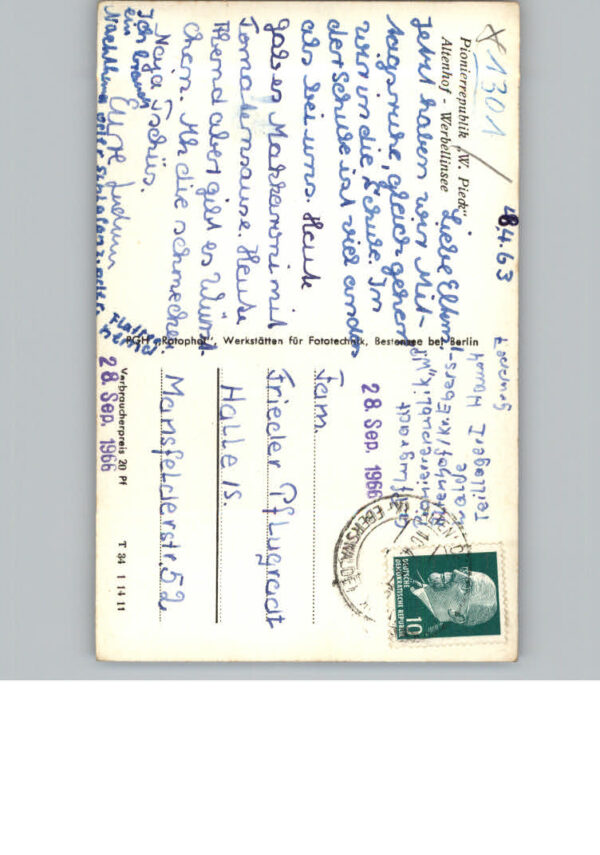 1301
Pionierrepublik „W. Pieck"
Altenhof - Werbellinsee
18.4.63
Liebe Eltern!
Jetzt haben wir Mit-
tagsruhe, gleich gehen
wir in die Schule. In
der Schule ist viel anders
als bei uns. Heute
gab es Makkaroni mit
Tomatensauce. Heute
Abend aber gibt es Würst-
chen. Ah die schmecken.
Naja Tschüs.
Eure
Ich brauch
ein
Nachthemd oder
PGH „Rotophot", Werkstätten für Fototechnik, Bestensee bei Berlin
Verbraucherpreis 20 Pf
T 84 1 14 11
28. Sep. 1966
28. Sep. 1966
Fam.
Frieder Pflugradt
Halle/S.
Mansfelderstr. 52
Pflugradt
Pionierrepublik
EBERSWALDE
DEUTSCHE
DEMOKRATISCHE REPUBLIK
10